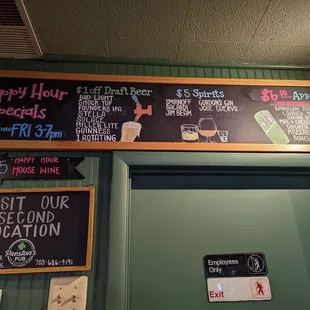 Happy Hour
Specials
FRI 3-7pm
$1 off Draft Beer
BUD LIGHT
SHOCK TOP
FOUNDERS IPA
STELLA
SOLACE
MILLER LITE
GUINNESS
1 ROTATING
$5 Spirits
SMIRNOFF
BACARDI
JIM BEAM
GORDONS GIN
JOSE CUERVO
$6.00 App
$5 HAPPY HOUR
HOUSE WINE
VISIT OUR
SECOND
LOCATION
Preston's
PUB
703-686-4191
Employees
Only
Exit